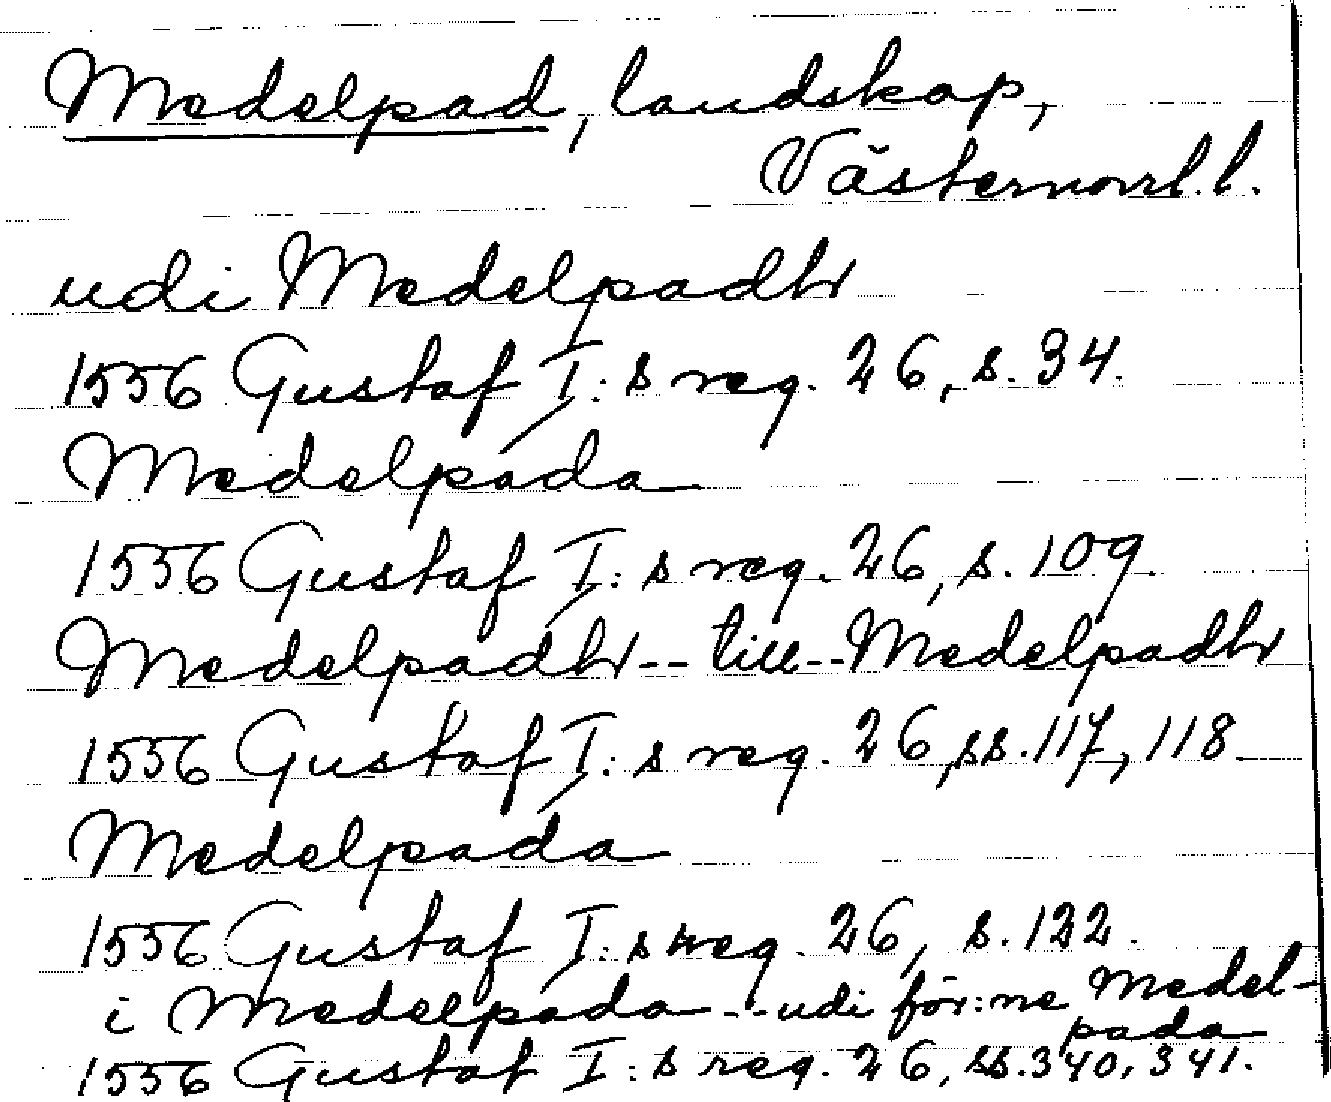 Medelpad, landskap,
Västernorrl.l.
udi Medelpadhr
1556 Gustaf I:s reg. 26, s. 34.
Medelpada
1556 Gustaf I:s reg. 26, s. 109.
Medelpadhr -- till -- Medelpadhr
1556 Gustaf I:s reg. 26, ss. 117, 118
Medelpada
1556 Gustaf I:s reg. 26, s. 122.
i Medelpada -- udi för:ne Medel-
pada
1556 Gustaf I:s reg. 26, ss. 340, 341.